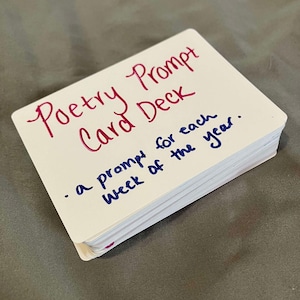 Poetry Prompt
Card Deck
• a prompt for each
week of the year.